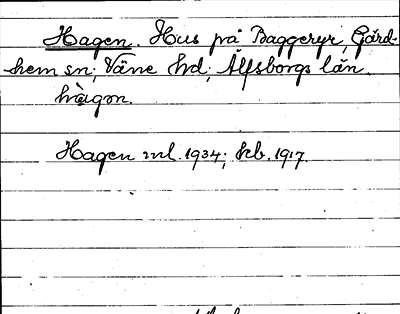 Hagen. Hus på Baggeryr, Gärd-
hem sn; Väne hd; Älfsborgs län.
hàgɔn.
Hagen ml. 1934; kb. 1917.